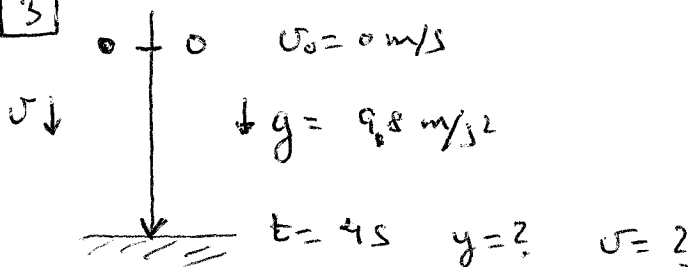 3
0 v₀ = 0 m/s
v↓ ↓ g = 9,8 m/s²
t = 4s y = ? v = ?